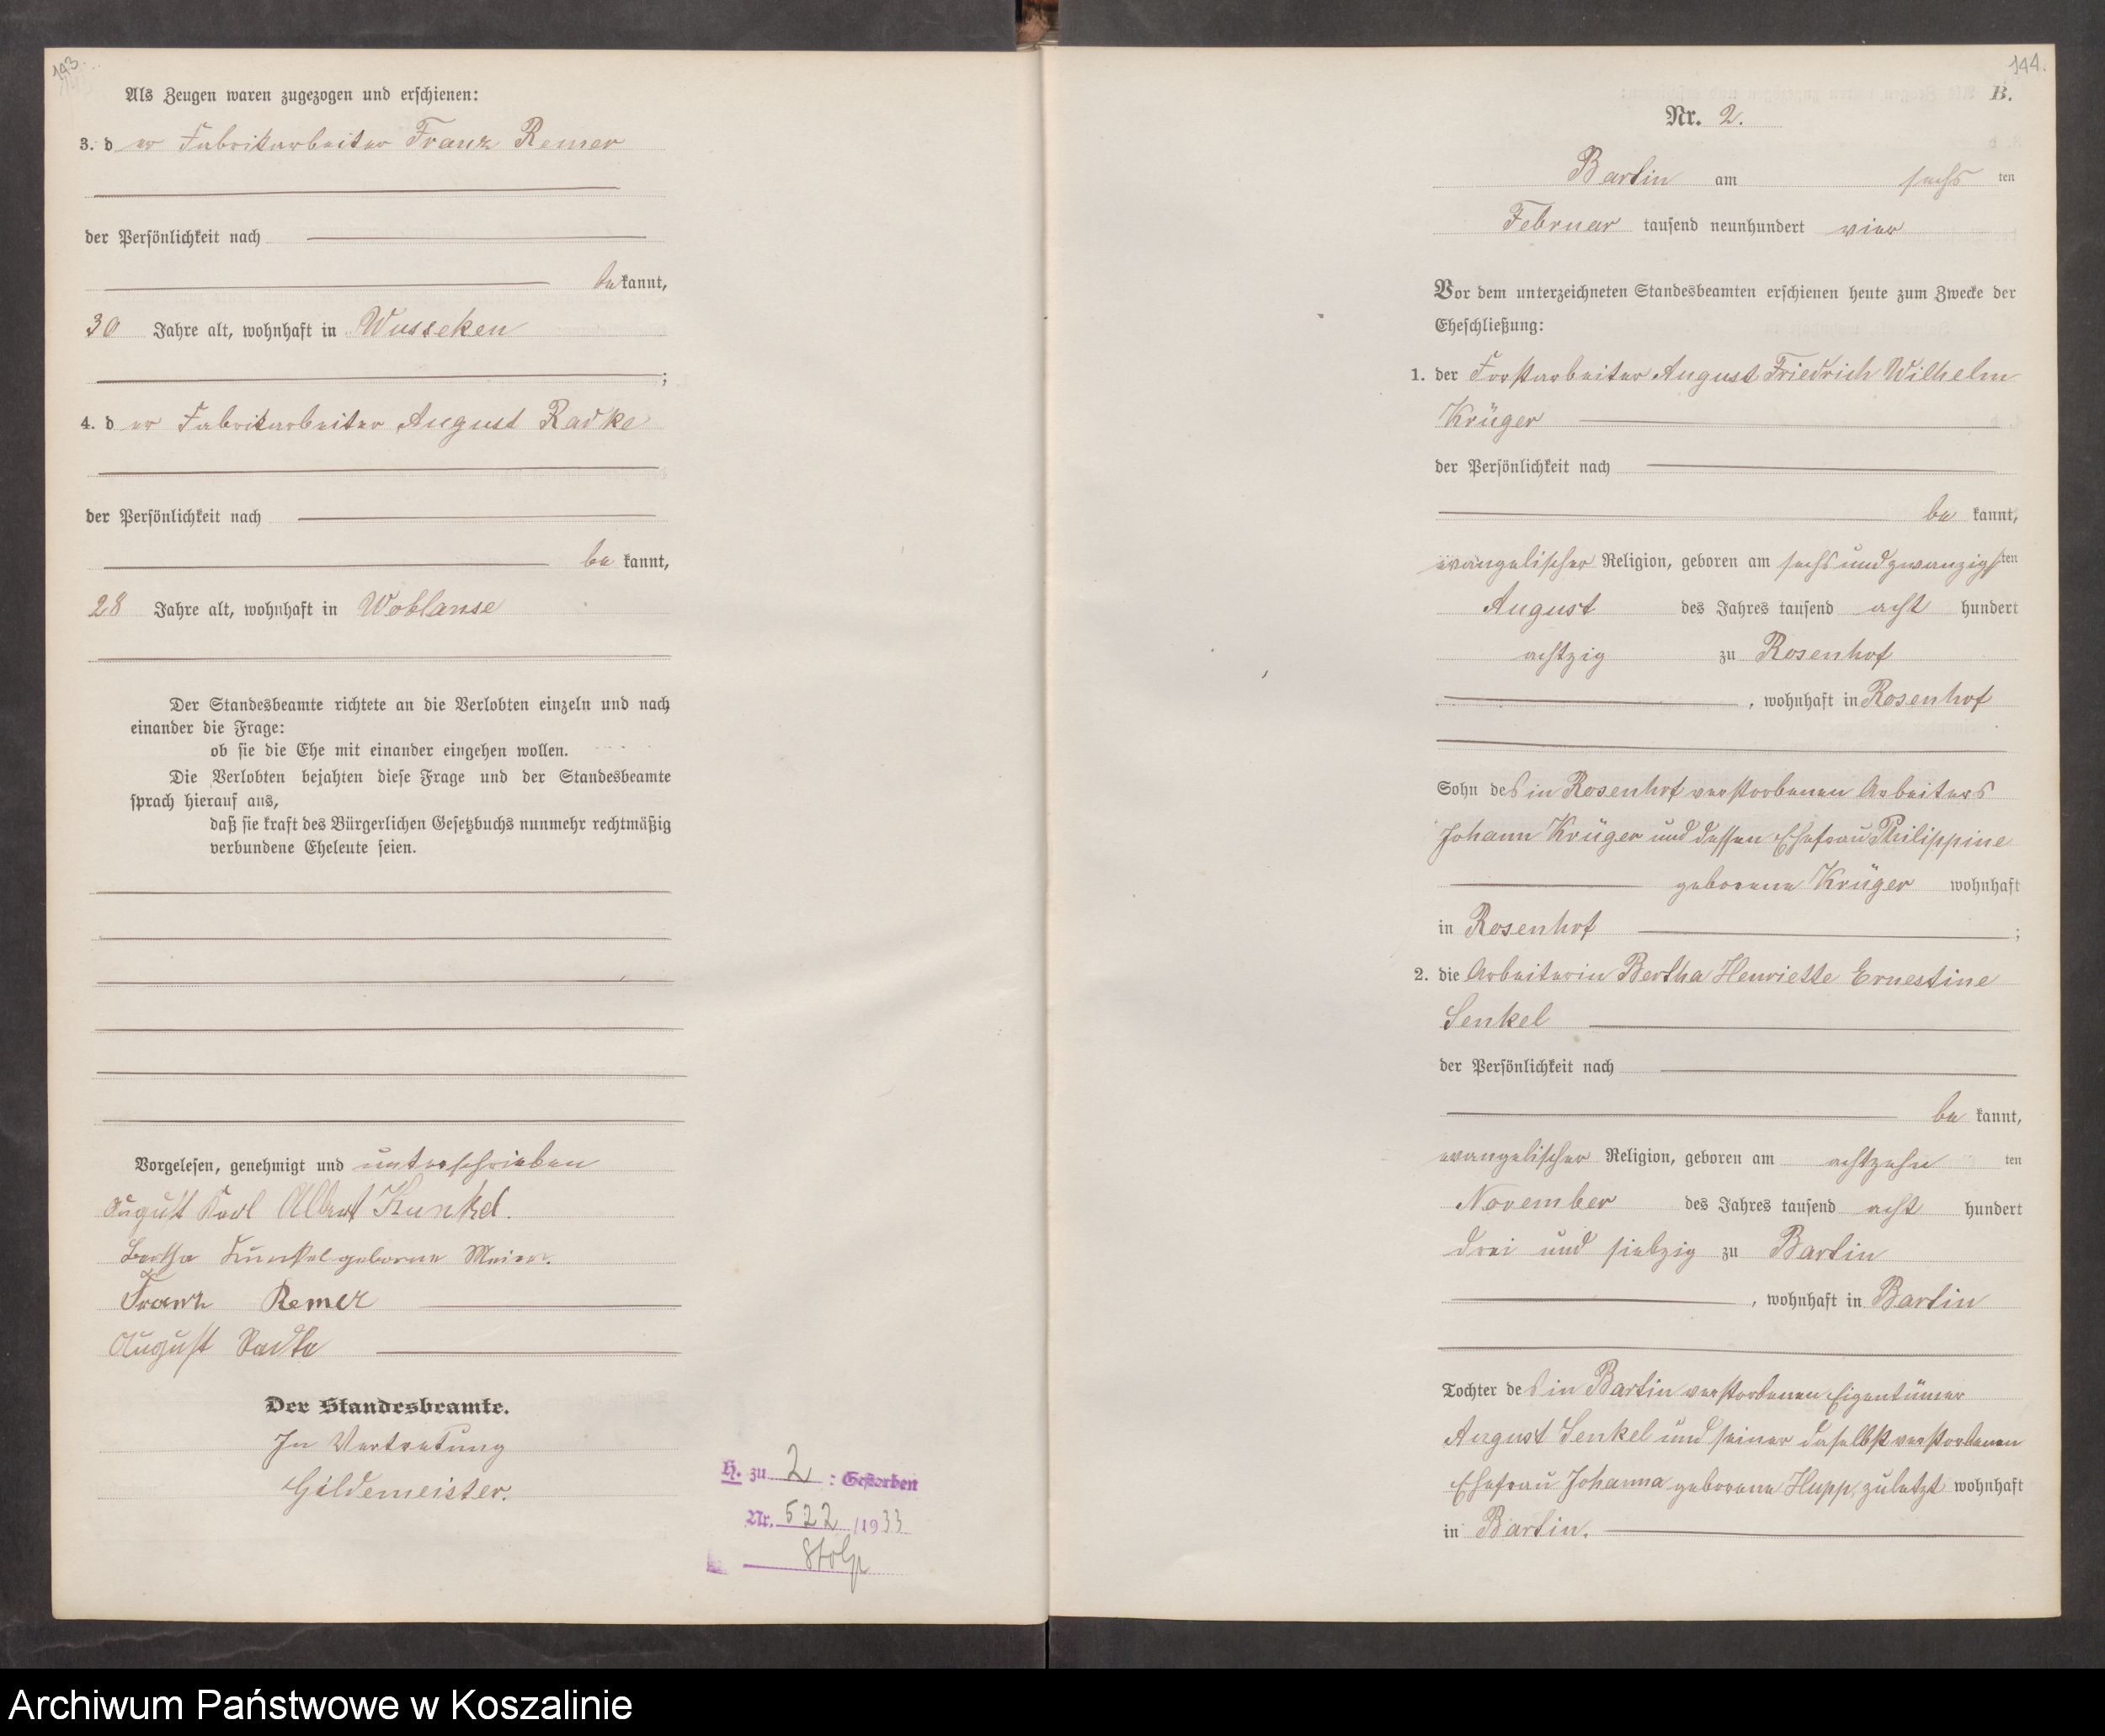 143.
Als Zeugen waren zugezogen und erschienen:
3. d er Fabrikarbeiter Franz Remer
der Persönlichkeit nach
be kannt,
30 Jahre alt, wohnhaft in Wusseken
;
4. d er Fabrikarbeiter August Radke
der Persönlichkeit nach
be kannt,
28 Jahre alt, wohnhaft in Woblanse
Der Standesbeamte richtete an die Verlobten einzeln und nach
einander die Frage:
ob sie die Ehe mit einander eingehen wollen.
Die Verlobten bejahten diese Frage und der Standesbeamte
sprach hierauf aus,
daß sie kraft des Bürgerlichen Gesetzbuchs nunmehr rechtmäßig
verbundene Eheleute seien.
Vorgelesen, genehmigt und unterschrieben
August Karl Albert Kunkel.
Bertha Kunkel geborene Meier.
Franz Remer
August Radke
Der Standesbeamte.
In Vertretung
Gildemeister.
H. zu 2 : Gestorben
Nr. 522 /1933
Stolp
144.
B.
Nr. 2.
Bartin am sechs ten
Februar tausend neunhundert vier
Vor dem unterzeichneten Standesbeamten erschienen heute zum Zwecke der
Eheschließung:
1. der Forstarbeiter August Friedrich Wilhelm
Krüger
der Persönlichkeit nach
be kannt,
evangelischer Religion, geboren am sechsundzwanzigs ten
August des Jahres tausend acht hundert
achtzig zu Rosenhof
, wohnhaft in Rosenhof
Sohn des in Rosenhof verstorbenen Arbeiters
Johann Krüger und dessen Ehefrau Philippine
geborene Krüger wohnhaft
in Rosenhof ;
2. die Arbeiterin Bertha Henriette Ernestine
Senkel
der Persönlichkeit nach
be kannt,
evangelischer Religion, geboren am achtzehn ten
November des Jahres tausend acht hundert
drei und siebzig zu Bartin
, wohnhaft in Bartin
Tochter des in Bartin verstorbenen Eigentümer
August Senkel und seiner daselbst verstorbenen
Ehefrau Johanna geborene Hupp, zuletzt wohnhaft
in Bartin.
Archiwum Państwowe w Koszalinie